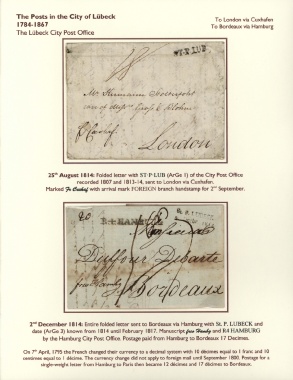 The Posts in the City of Lübeck
1784-1867
The Lübeck City Post Office
To London via Cuxhafen
To Bordeaux via Hamburg
ST·P LUB
Mr Hermann
care of
London
25th August 1814: Folded letter with ST·P LUB (ArGe 1) of the City Post Office
recorded 1807 and 1813-14, sent to London via Cuxhafen.
Marked Pr Cuxhaf with arrival mark FOREIGN branch handstamp for 2nd September.
R4 HAMBURG
St. P. LUBECK
Dufour Debarte
Bordeaux
2nd December 1814: Entire folded letter sent to Bordeaux via Hamburg with St. P. LUBECK and
date (ArGe 3) known from 1814 until February 1817. Manuscript pr Hamburg and R4 HAMBURG
by the Hamburg City Post Office. Postage paid from Hamburg to Bordeaux 17 Decimes.
On 7th April, 1795 the French changed their currency to a decimal system with 10 decimes equal to 1 franc and 10
centimes equal to 1 decime. The currency change did not apply for foreign mail until September 1800. Postage for a
single-weight letter from Hamburg to Paris then became 12 decimes and 17 decimes to Bordeaux.